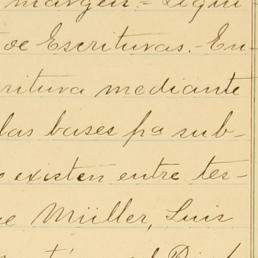 margen = Liqui
de Escrituras. En-
ritura mediante
las bases pa sub-
existen entre tes-
e Müller, Luis